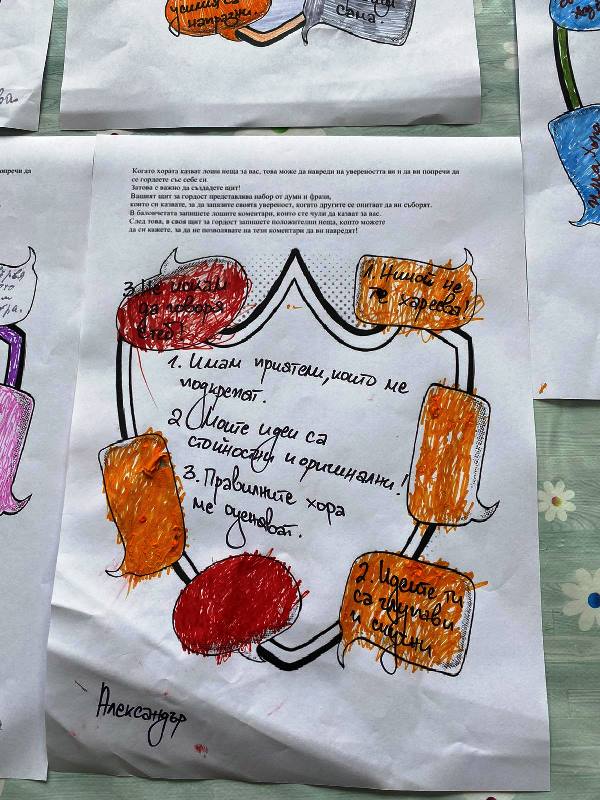 усилия са
напразни.
сама.
Когато хората казват лоши неща за вас, това може да навреди на увереността ви и да ви попречи да
се гордеете със себе си.
Затова е важно да създадете щит!
Вашият щит за гордост представлява набор от думи и фрази,
които си казвате, за да запазите своята увереност, когато другите се опитват да ви съборят.
В балончетата запишете лошите коментари, които сте чули да казват за вас.
След това, в своя щит за гордост запишете положителни неща, които можете
да си кажете, за да не позволявате на тези коментари да ви навредят!
попречи да
3. Не искам
да говоря
с теб!
1. Никой не
те харесва!
1. Имам приятели, които ме
подкрепят.
2 Моите идеи са
стойностни и оригинални!
3. Правилните хора
ме оценяват.
2. Идеите ти
са глупави
и скучни
Александър